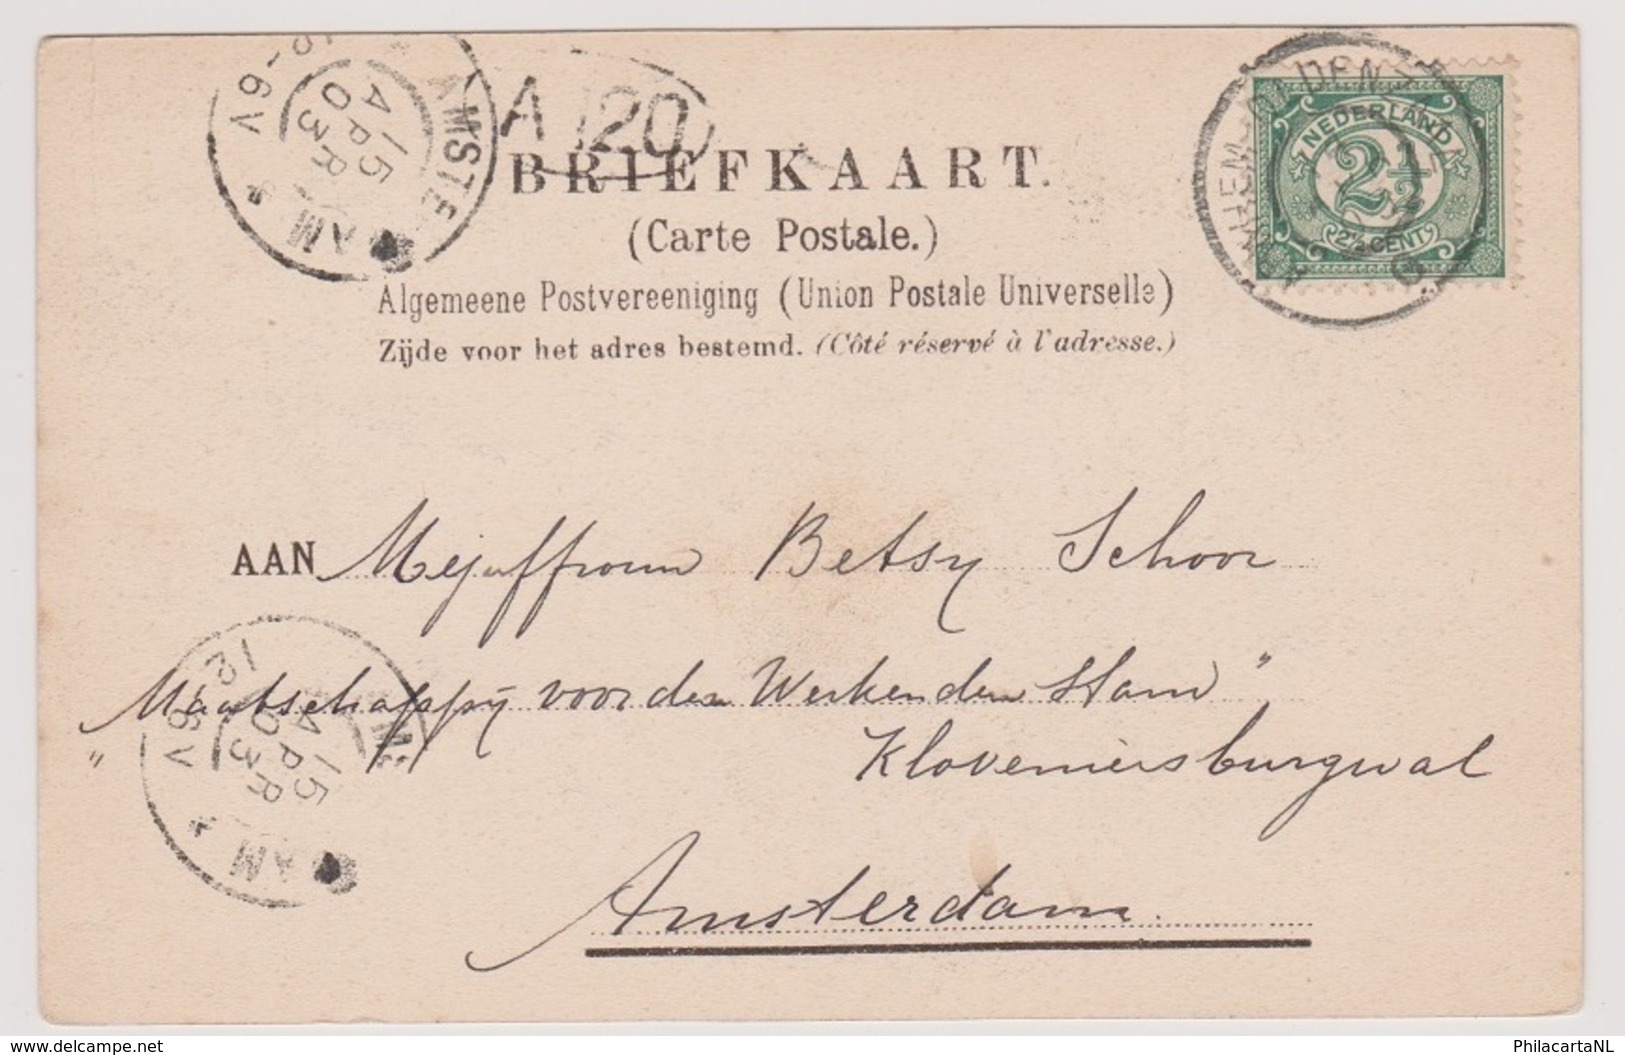 AMSTERDAM
5-6V
15 APR 03
A 120
BRIEFKAART.
(Carte Postale.)
Algemeene Postvereeniging (Union Postale Universelle)
Zijde voor het adres bestemd. (Côté réservé à l'adresse.)
NEDERLAND
2½
2½ CENT
AAN Mejuffrouw Betsy Schoor
"Maatschappij voor den Werkenden Stand"
Kloveniersburgwal
Amsterdam.
12-6V
15 APR 03
AM
www.delcampe.net
PhilacartaNL